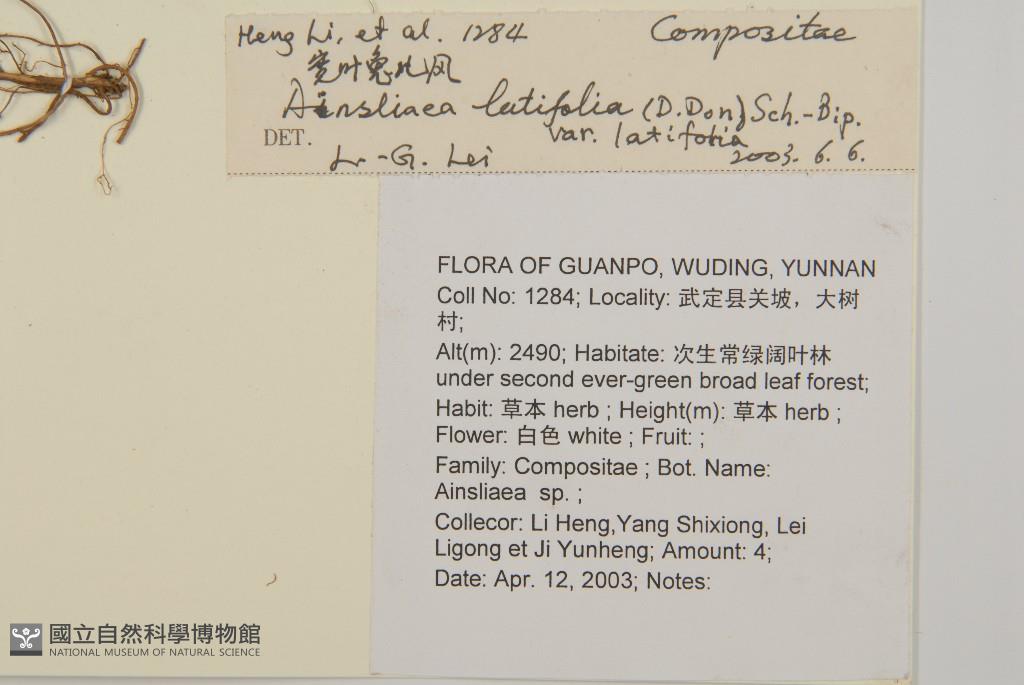 Heng Li, et al. 1284 Compositae
宽叶兔儿风
Ainsliaea latifolia (D.Don) Sch.-Bip.
var. latifolia
DET. L.-G. Lei 2003. 6. 6.
FLORA OF GUANPO, WUDING, YUNNAN
Coll No: 1284; Locality: 武定县关坡，大树
村;
Alt(m): 2490; Habitate: 次生常绿阔叶林
under second ever-green broad leaf forest;
Habit: 草本 herb ; Height(m): 草本 herb ;
Flower: 白色 white ; Fruit: ;
Family: Compositae ; Bot. Name:
Ainsliaea sp. ;
Collecor: Li Heng,Yang Shixiong, Lei
Ligong et Ji Yunheng; Amount: 4;
Date: Apr. 12, 2003; Notes:
國立自然科學博物館
NATIONAL MUSEUM OF NATURAL SCIENCE